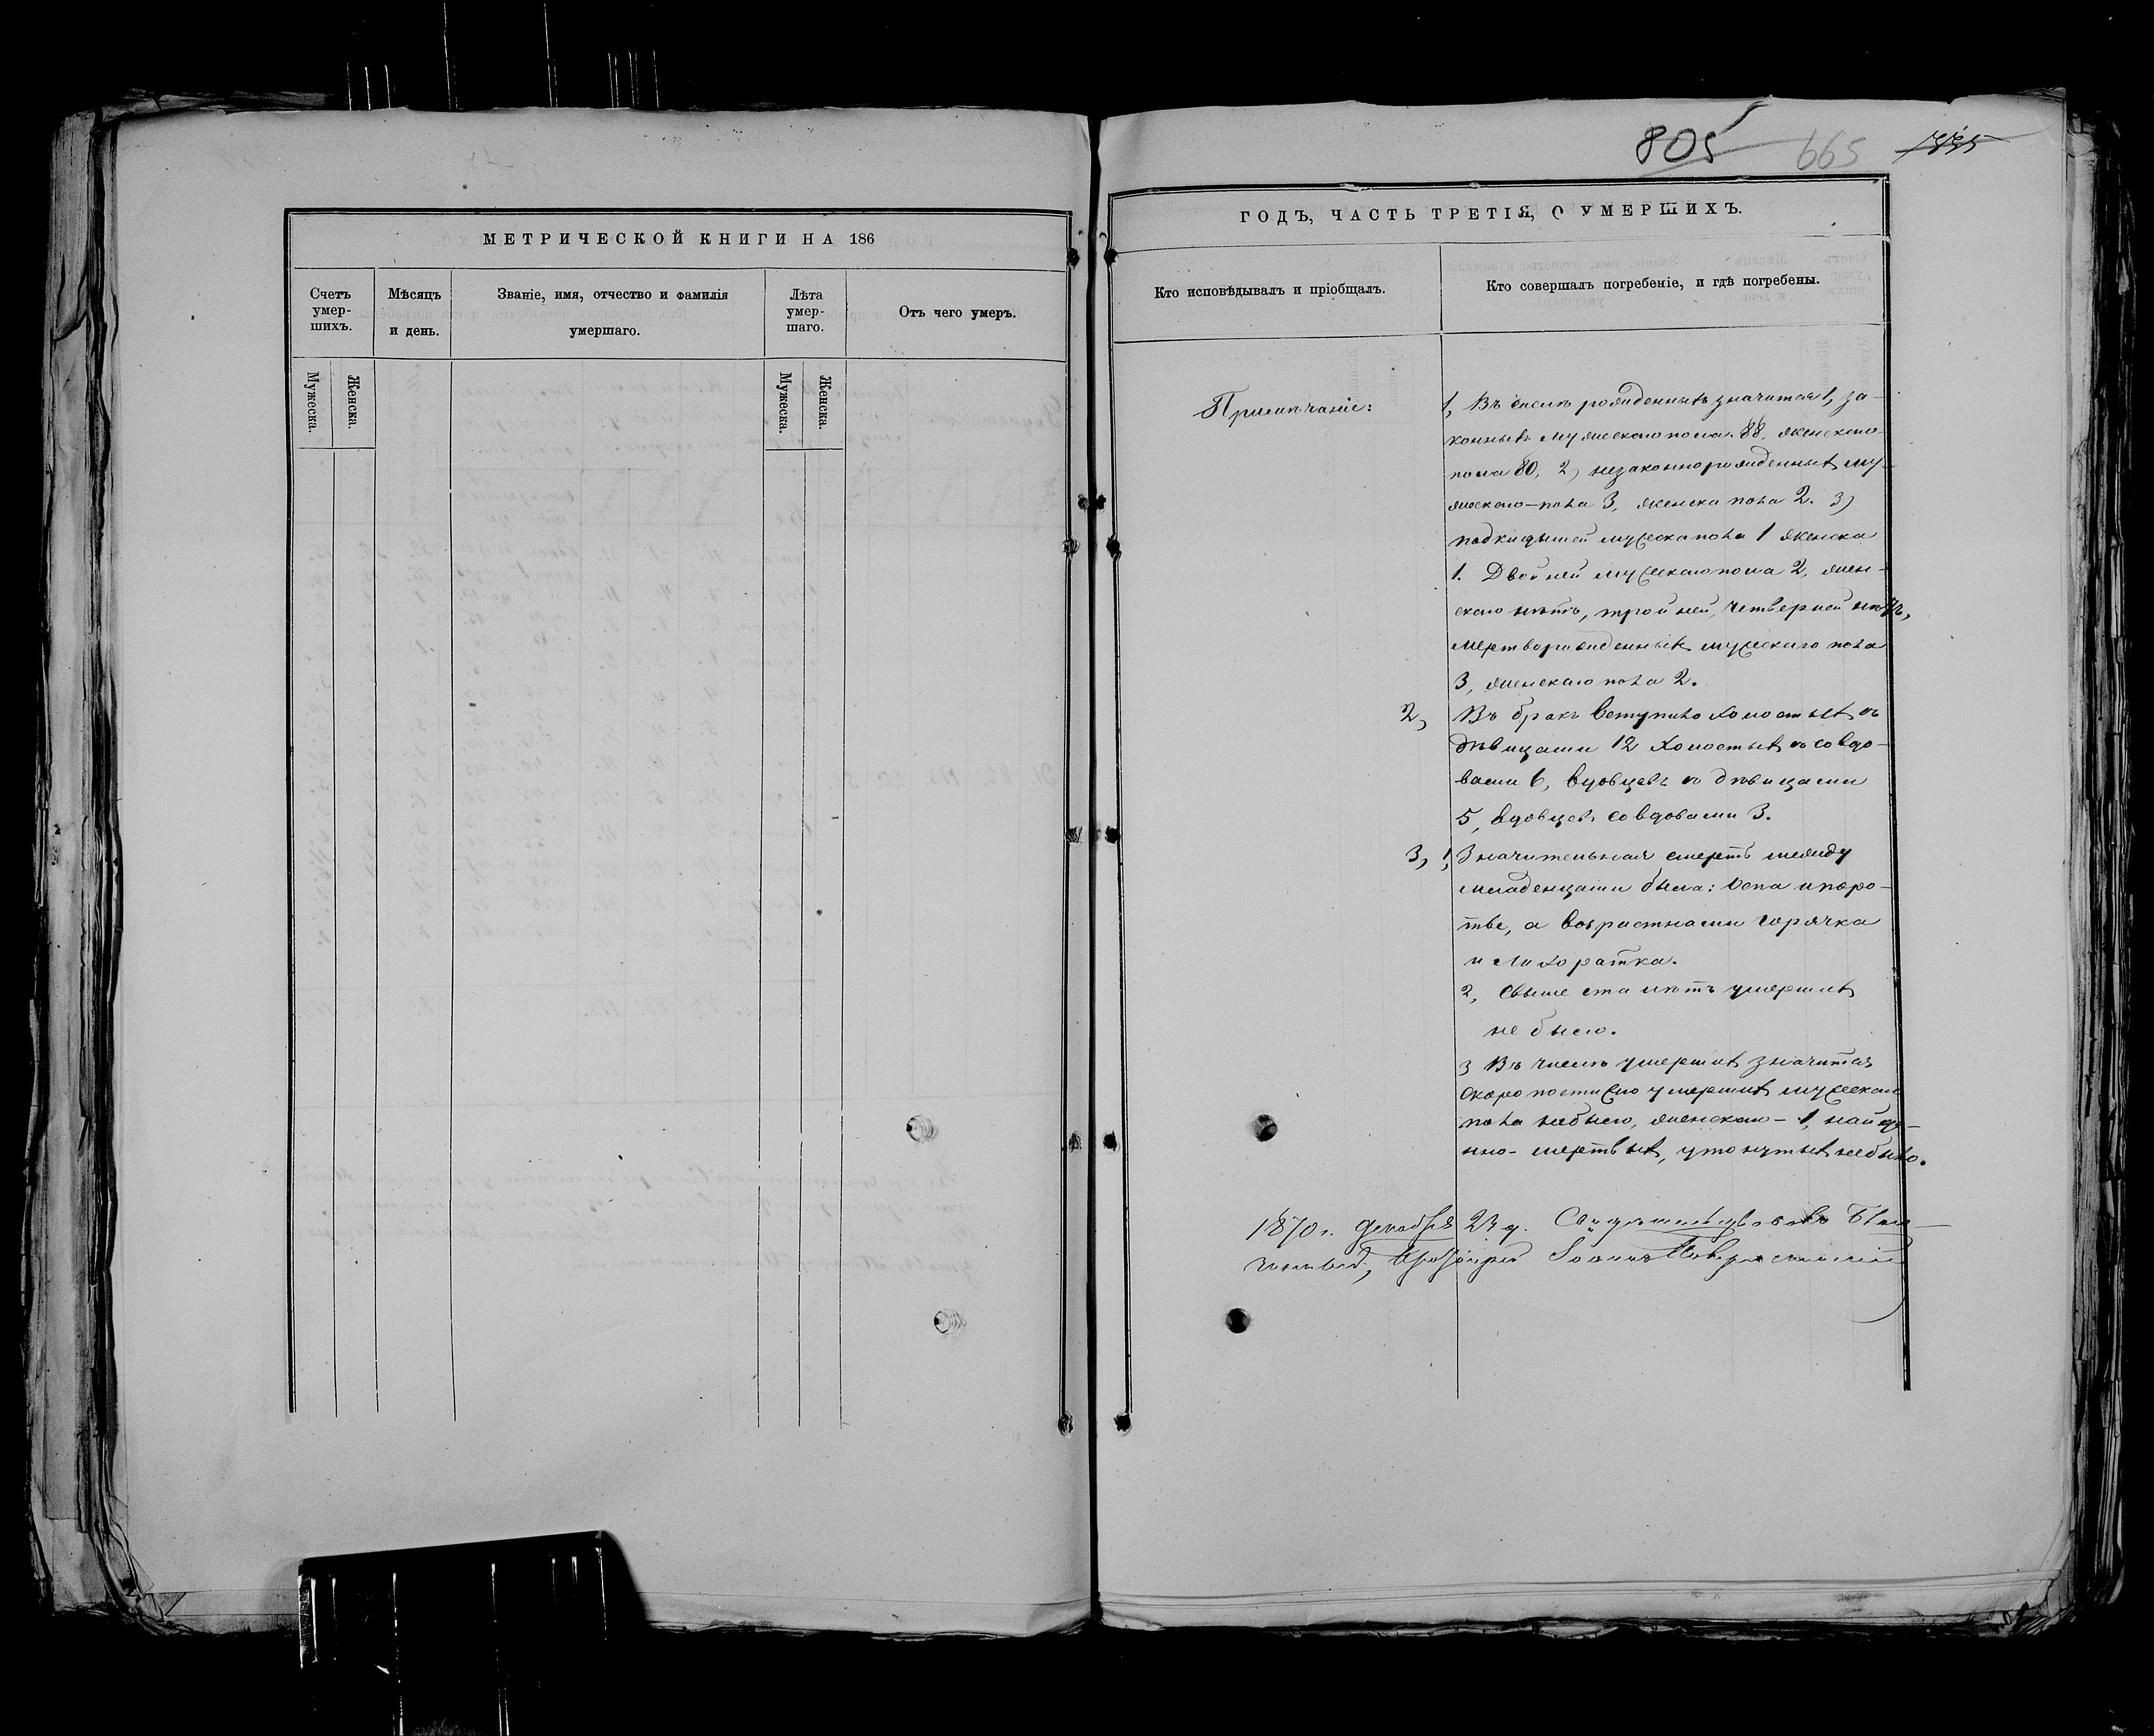 805 665
МЕТРИЧЕСКОЙ КНИГИ НА 186
Счетъ умер-шихъ.
Мѣсяцъ и день.
Званіе, имя, отчество и фамилія умершаго.
Лѣта умер-шаго.
Отъ чего умеръ.
Мужеска.
Женска.
Мужеска.
Женска.
ГОДЪ, ЧАСТЬ ТРЕТІЯ, О УМЕРШИХЪ.
Кто исповѣдывалъ и пріобщалъ.
Кто совершалъ погребеніе, и гдѣ погребены.
Примѣчаніе:
1, Въ числѣ рожденныхъ значится 1, за-
конныхъ мужескаго пола 88, женскаго
пола 80, 2) незаконнорожденныхъ му-
жескаго-пола 3, женска пола 2. 3)
подкидышей мужеска пола 1 женска
1. Двойней мужескаго пола 2, жен-
скаго нѣтъ, тройней, четверней нѣтъ,
мертворожденныхъ мужескаго пола
3, женскаго пола 2.
2, Въ бракъ вступило холостыхъ съ
дѣвицами 12 холостыхъ со вдо-
вами 6, вдовцевъ съ дѣвицами
5, вдовцевъ со вдовами 3.
3, 1, Значительная смерть между
младенцами была: оспа и
а возрастными горячка
и лихоратка.
2, Свыше ста лѣтъ умершихъ
не было.
3 Въ числѣ умершихъ значится
скоропостижно умершихъ мужескаго
пола небыло, женскаго - 1, найде-
нно- мертвыхъ, утонутыхъ небыло.
1870 г. Декабря 23 д. Свидѣтельствовалъ Благо-
Іоаннъ